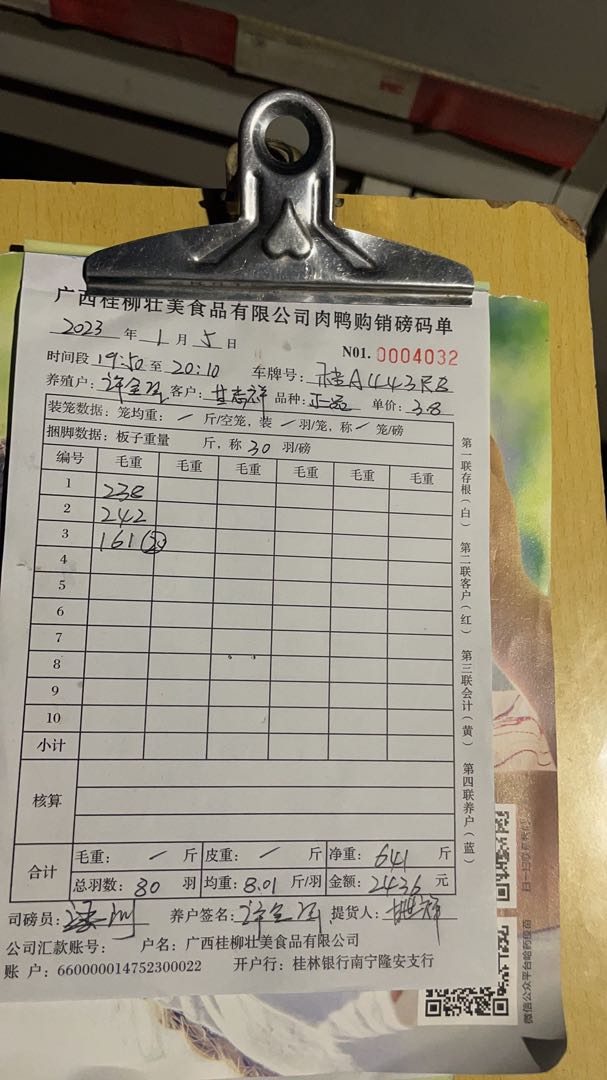 广西桂柳壮美食品有限公司肉鸭购销磅码单
2023 年 1 月 5 日
N01. 0004032
时间段 19:50 至 20:10 车牌号: 桂A443
养殖户: 客户: 甘志祥 品种: 正品 单价: 3.8
装笼数据: 笼均重: / 斤/空笼, 装 / 羽/笼, 称 / 笼/磅
捆脚数据: 板子重量 斤, 称 30 羽/磅
编号 毛重 毛重 毛重 毛重 毛重 毛重
1 238
2 242
3 161 (20)
4
5
6
7
8
9
10
小计
核算
合计
毛重: / 斤 皮重: / 斤 净重: 641 斤
总羽数: 80 羽 均重: 8.01 斤/羽 金额: 2436 元
司磅员: 养户签名: 提货人:
公司汇款账号: 户名: 广西桂柳壮美食品有限公司
账 户: 660000014752300022 开户行: 桂林银行南宁隆安支行
第一联存根(白) 第二联客户(红) 第三联会计(黄) 第四联养户(蓝)
微信公众平台哈药疫苗